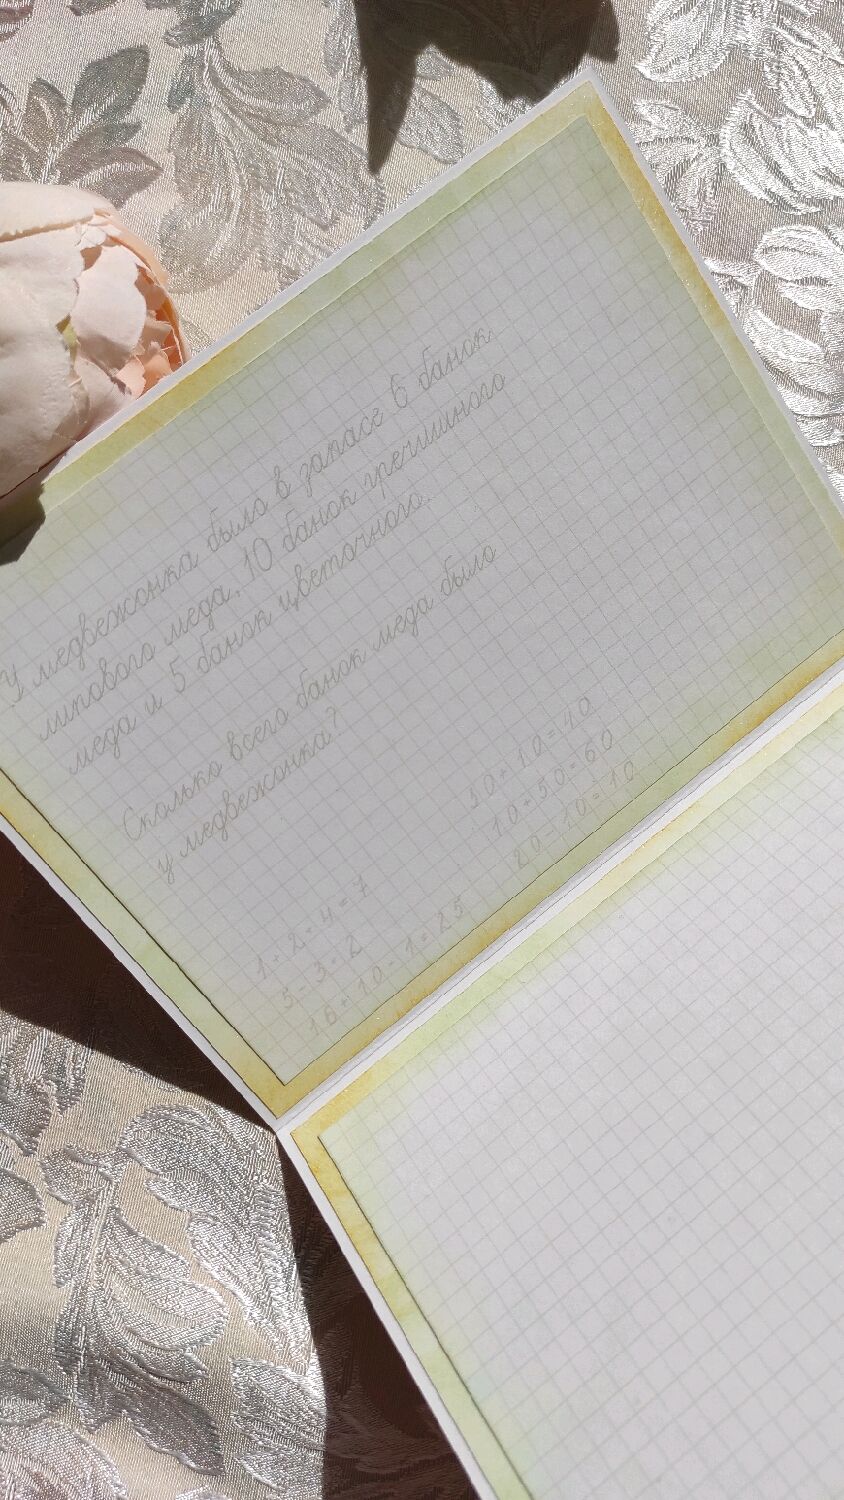 У медвежонка было в запасе 6 банок
липового меда, 10 банок гречишного
меда и 5 банок цветочного.
Сколько всего банок меда было
у медвежонка?
1 + 2 + 4 = 7
5 - 3 = 2
16 + 10 - 1 = 25
30 + 10 = 40
10 + 50 = 60
20 - 10 = 10